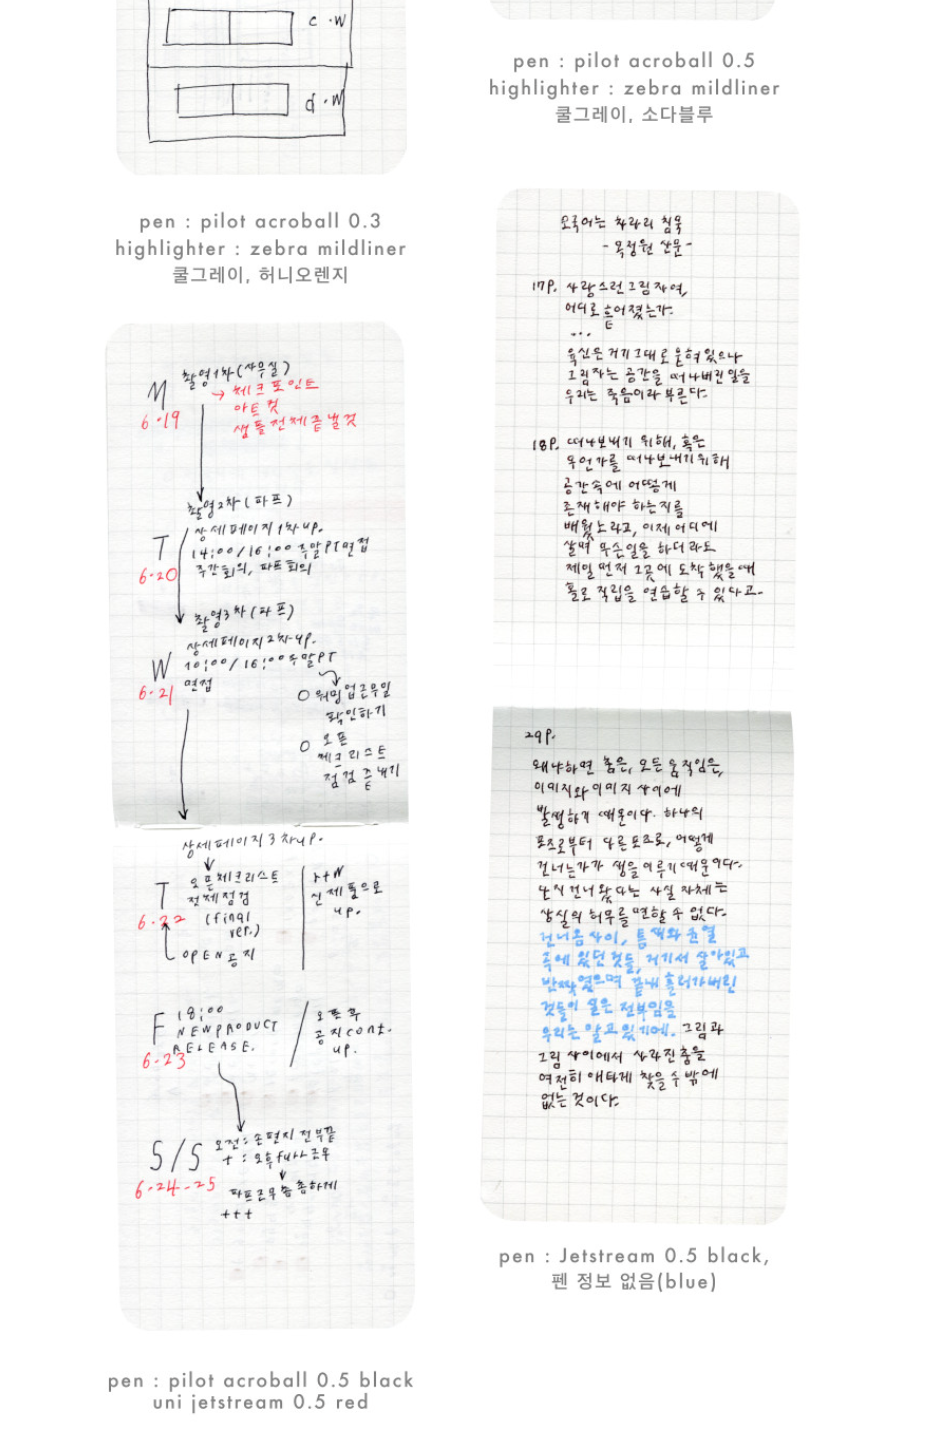 c · W
d · W
pen : pilot acroball 0.3
highlighter : zebra mildliner
쿨그레이, 허니오렌지
M
6·19
촬영1차(사무실)
→ 체크포인트
아트컷
샘플전체줄낼것
촬영2차(파프)
T
6·20
상세페이지1차up.
14:00/16:00주말PT면접
주간회의, 파트회의
촬영3차(파프)
W
6·21
상세페이지2차up.
10:00/16:00주말PT
면접
O 워밍업근무일
확인하기
O 오픈
체크리스트
점검
상세페이지3차up.
T
6·22
오픈체크리스트
전체점검
(final
ver.)
OPEN공지
신제품으로
up.
F
6·23
18:00
NEWPRODUCT
RELEASE.
오픈후
공지cont.
up.
S/S
6·24-25
오전:손편지 전부끝
+ : 오후full근무
파프근무
+++
pen : pilot acroball 0.5 black
uni jetstream 0.5 red
pen : pilot acroball 0.5
highlighter : zebra mildliner
쿨그레이, 소다블루
모국어는 차라리 침묵
- 목정원 산문 -
17p. 사랑스런그림자여,
어디로 흩어졌는가.
...
육신은거기그대로묻혀있으나
그림자는 공간을 떠나버린일을
우리는 죽음이라부른다.
18p. 떠나보내기 위해, 혹은
무언가를 떠나보내기위해
공간속에 어떻게
존재해야 하는지를
배웠노라고, 이제어디에
살며 무슨일을 하더라도
제일먼저 그곳에 도착했을때
홀로 직립을 연습할 수 있다고.
29p.
왜냐하면 춤은, 모든 움직임은,
이미지와 이미지 사이에
발생하기 때문이다. 하나의
포즈로부터 다른포즈로, 어떻게
건너는가가 생을이루기때문이다.
단지건너왔다는 사실 자체는
상실의 허무를 면할 수 없다.
건너옴 사이, 틈새와 균열
속에 있던것들, 거기서 살아있고
반짝였으며 끝내 흘러가버린
것들이 실은 전부임을
우리는 알고있기에. 그림과
그림 사이에서 사라진춤을
여전히 애타게 찾을수밖에
없는 것이다.
pen : Jetstream 0.5 black,
펜 정보 없음(blue)